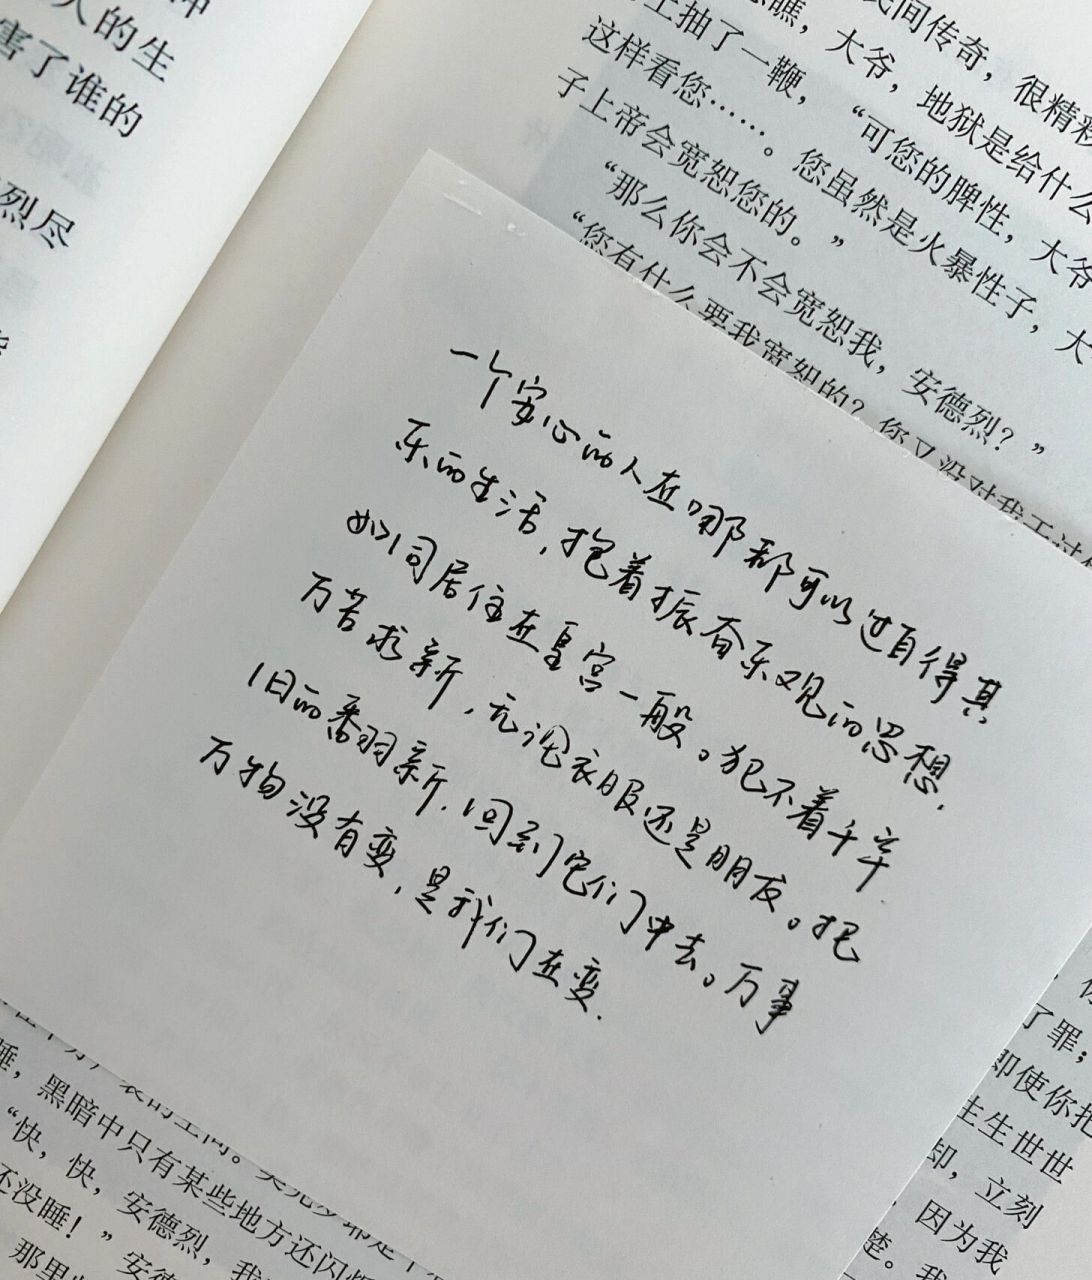 人的生
害了谁的
烈尽
民间传奇，很精彩
上抽了一鞭，
瞧，大爷，地狱是给什么
这样看您……。
“可您的脾性，大爷
子上帝会宽恕您的。”
您虽然是火暴性子，大
“那么你会不会宽恕我，安德烈？”
“您有什么要我宽恕的？您又没对我干过
一个安心的人在哪都可以过自得其
乐的生活，抱着振奋乐观的思想，
如同居住在皇宫一般。犯不着千辛
万苦求新，无论衣服还是朋友。把
旧的翻新，回到它们中去。万事
万物没有变，是我们在变.
了罪；
即使你把
生生世世
却，立刻
因为我
楚。我
睡，黑暗中只有某些地方还闪烁
“快，快，安德烈，我
还没睡！”安德
那里